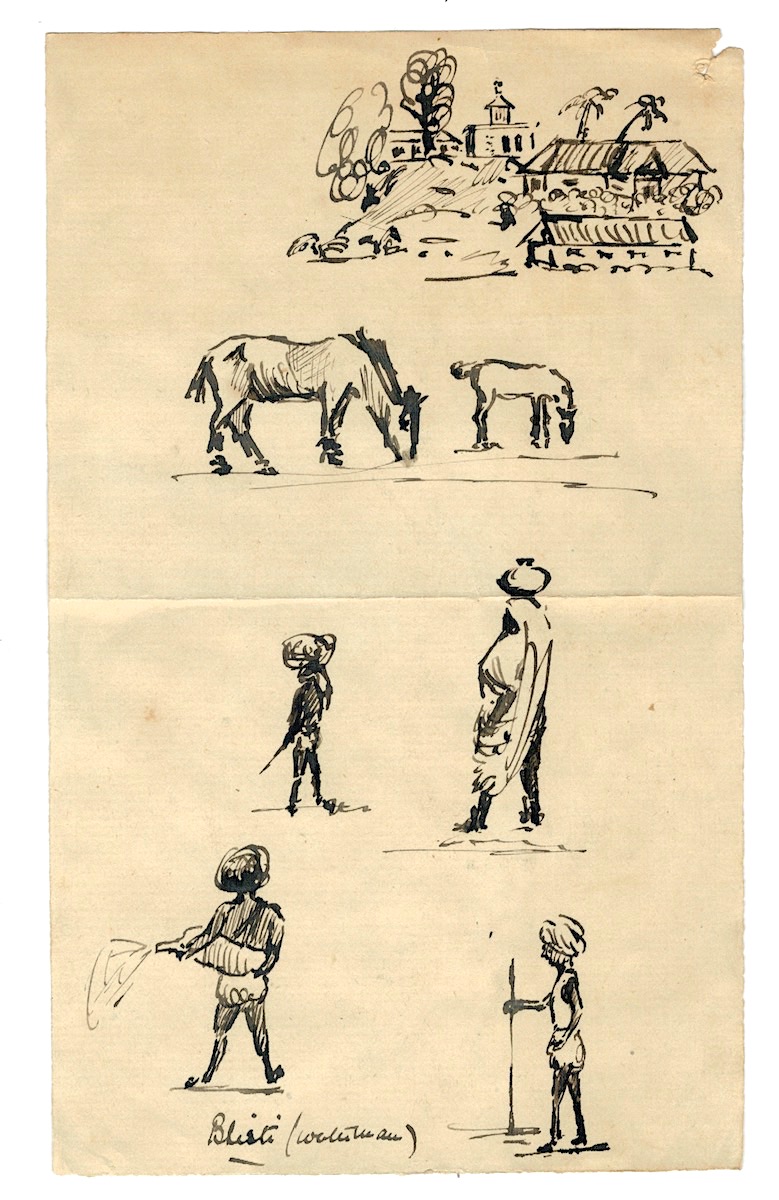 Bhisti (waterman)